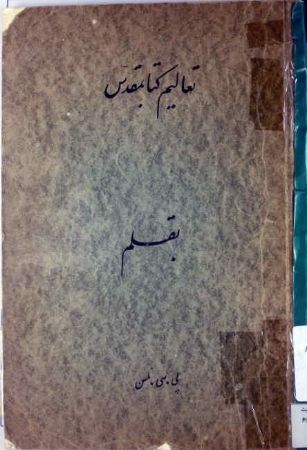 تعالیم کتابمقدس
بقلم
پی. سی. نلسن